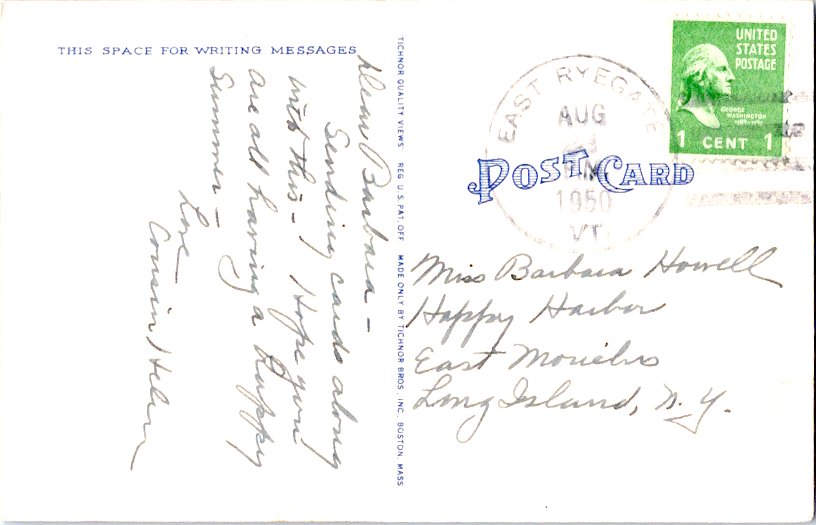 THIS SPACE FOR WRITING MESSAGES
Dear Barbara –
Sending cards along
with this – Hope you
are all having a happy
Summer –
Love
Cousin Helen
TICHNOR QUALITY VIEWS REG. U. S. PAT. OFF. MADE ONLY BY TICHNOR BROS., INC., BOSTON, MASS.
UNITED
STATES
POSTAGE
GEORGE
WASHINGTON
1 CENT 1
EAST RYEGATE
AUG
1950
VT
POST CARD
Miss Barbara Howell
Happy Harbor
East Moriches
Long Island, N.Y.